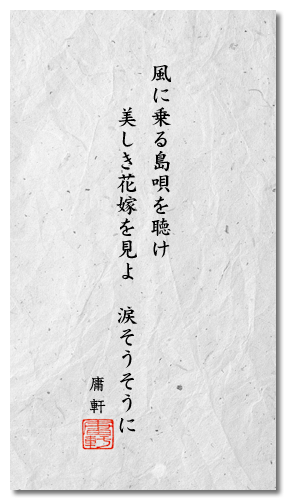 風に乗る島唄を聴け
美しき花嫁を見よ　涙そうそうに
庸軒